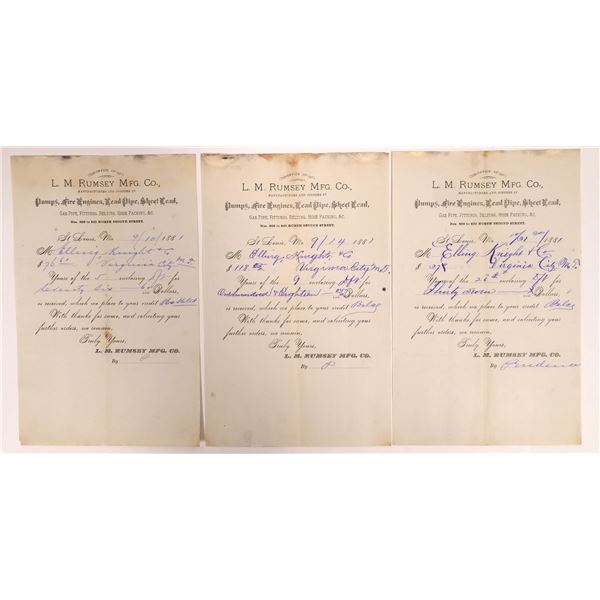 OFFICE OF
L. M. RUMSEY MFG. CO.,
MANUFACTURERS AND JOBBERS IN
Pumps, Fire Engines, Lead Pipe, Sheet Lead,
GAS PIPE, FITTINGS, BELTING, HOSE PACKING, &C.
NORTH SECOND STREET.
St Louis, Mo. 9/10/1881
M Elling Knight & Co
$76 Virginia City M.T.
Yours of the 5 enclosing dft for
Seventy Six Dollars,
is received, which we place to your credit
With thanks for same, and soliciting your
further orders, we remain,
Truly Yours,
L. M. RUMSEY MFG. CO.
By
OFFICE OF
L. M. RUMSEY MFG. CO.,
MANUFACTURERS AND JOBBERS IN
Pumps, Fire Engines, Lead Pipe, Sheet Lead,
GAS PIPE, FITTINGS, BELTING, HOSE PACKING, &C.
NORTH SECOND STREET.
St Louis, Mo. 9/14 1881
M Elling Knight & Co
$118 Virginia City M.T.
Yours of the 9 enclosing dft for
Onehundred & Eighteen Dollars,
is received, which we place to your credit
With thanks for same, and soliciting your
further orders, we remain,
Truly Yours,
L. M. RUMSEY MFG. CO.
By
OFFICE OF
L. M. RUMSEY MFG. CO.,
MANUFACTURERS AND JOBBERS IN
Pumps, Fire Engines, Lead Pipe, Sheet Lead,
GAS PIPE, FITTINGS, BELTING, HOSE PACKING, &C.
NORTH SECOND STREET.
St Louis, Mo. 1881
M Elling Knight & Co
$ Virginia City M.T.
Yours of the enclosing dft for
Thirty Dollars,
is received, which we place to your credit
With thanks for same, and soliciting your
further orders, we remain,
Truly Yours,
L. M. RUMSEY MFG. CO.
By